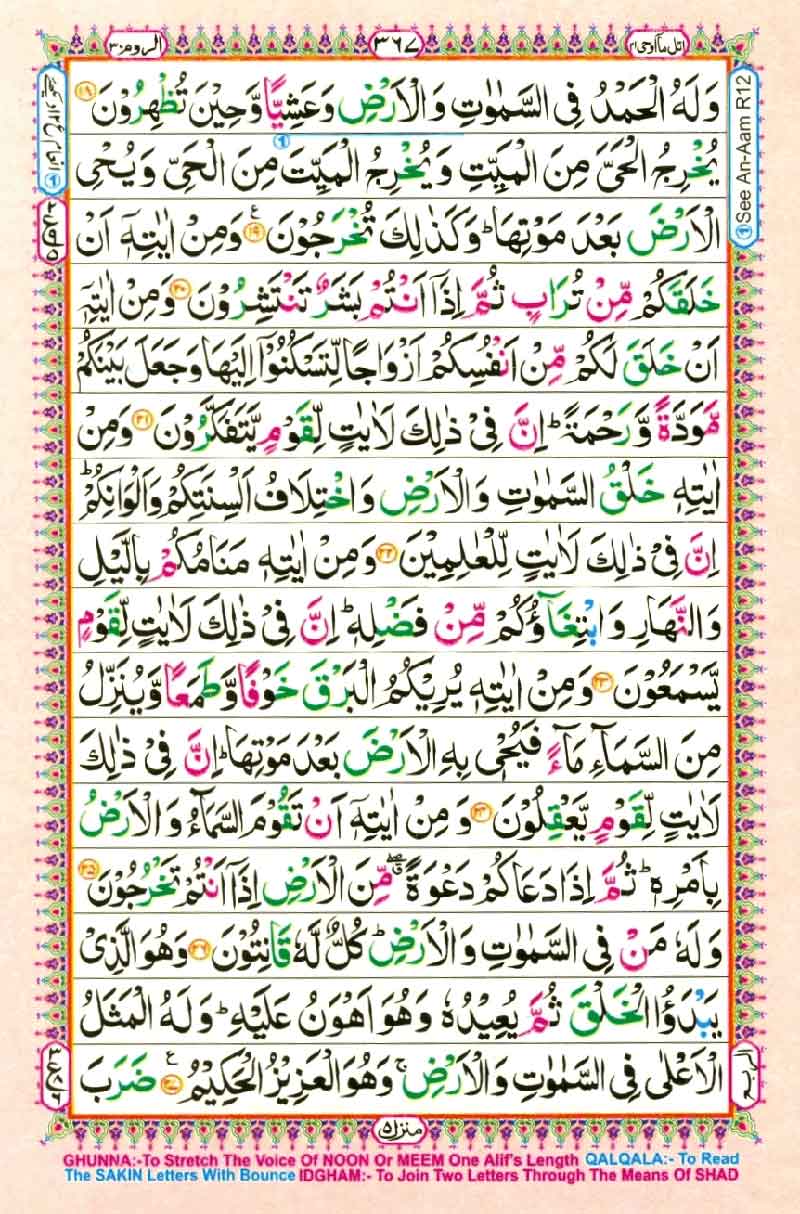 اتل مآاوحی۲۱ ۳۶۷ الروم۳۰
وَلَهُ الْحَمْدُ فِی السَّمٰوٰتِ وَالْاَرْضِ وَعَشِیًّا وَّحِیْنَ تُظْهِرُوْنَ ۱۸
یُخْرِجُ الْحَیَّ مِنَ الْمَیِّتِ وَیُخْرِجُ الْمَیِّتَ مِنَ الْحَیِّ وَیُحْیِ
الْاَرْضَ بَعْدَ مَوْتِهَا ؕ وَكَذٰلِكَ تُخْرَجُوْنَ ۱۹ ع وَمِنْ اٰیٰتِهٖۤ اَنْ
خَلَقَكُمْ مِّنْ تُرَابٍ ثُمَّ اِذَاۤ اَنْتُمْ بَشَرٌ تَنْتَشِرُوْنَ ۲۰ وَمِنْ اٰیٰتِهٖۤ
اَنْ خَلَقَ لَكُمْ مِّنْ اَنْفُسِكُمْ اَزْوَاجًا لِّتَسْكُنُوْۤا اِلَیْهَا وَجَعَلَ بَیْنَكُمْ
مَّوَدَّةً وَّرَحْمَةً ؕ اِنَّ فِیْ ذٰلِكَ لَاٰیٰتٍ لِّقَوْمٍ یَّتَفَكَّرُوْنَ ۲۱ وَمِنْ
اٰیٰتِهٖ خَلْقُ السَّمٰوٰتِ وَالْاَرْضِ وَاخْتِلَافُ اَلْسِنَتِكُمْ وَاَلْوَانِكُمْ ؕ
اِنَّ فِیْ ذٰلِكَ لَاٰیٰتٍ لِّلْعٰلِمِیْنَ ۲۲ وَمِنْ اٰیٰتِهٖ مَنَامُكُمْ بِالَّیْلِ
وَالنَّهَارِ وَابْتِغَآؤُكُمْ مِّنْ فَضْلِهٖ ؕ اِنَّ فِیْ ذٰلِكَ لَاٰیٰتٍ لِّقَوْمٍ
یَّسْمَعُوْنَ ۲۳ وَمِنْ اٰیٰتِهٖ یُرِیْكُمُ الْبَرْقَ خَوْفًا وَّطَمَعًا وَّیُنَزِّلُ
مِنَ السَّمَآءِ مَآءً فَیُحْیٖ بِهِ الْاَرْضَ بَعْدَ مَوْتِهَا ؕ اِنَّ فِیْ ذٰلِكَ
لَاٰیٰتٍ لِّقَوْمٍ یَّعْقِلُوْنَ ۲۴ وَمِنْ اٰیٰتِهٖۤ اَنْ تَقُوْمَ السَّمَآءُ وَالْاَرْضُ
بِاَمْرِهٖ ؕ ثُمَّ اِذَا دَعَاكُمْ دَعْوَةً ۖ مِّنَ الْاَرْضِ اِذَاۤ اَنْتُمْ تَخْرُجُوْنَ ۲۵
وَلَهٗ مَنْ فِی السَّمٰوٰتِ وَالْاَرْضِ ؕ كُلٌّ لَّهٗ قَانِتُوْنَ ۲۶ وَهُوَ الَّذِیْ
یَبْدَؤُا الْخَلْقَ ثُمَّ یُعِیْدُهٗ وَهُوَ اَهْوَنُ عَلَیْهِ ؕ وَلَهُ الْمَثَلُ
الْاَعْلٰی فِی السَّمٰوٰتِ وَالْاَرْضِ ۚ وَهُوَ الْعَزِیْزُ الْحَكِیْمُ ۲۷ ع ضَرَبَ
See An-Aam R12
منزل ۵
GHUNNA:-To Stretch The Voice Of NOON Or MEEM One Alif's Length QALQALA:- To Read
The SAKIN Letters With Bounce IDGHAM:- To Join Two Letters Through The Means Of SHAD